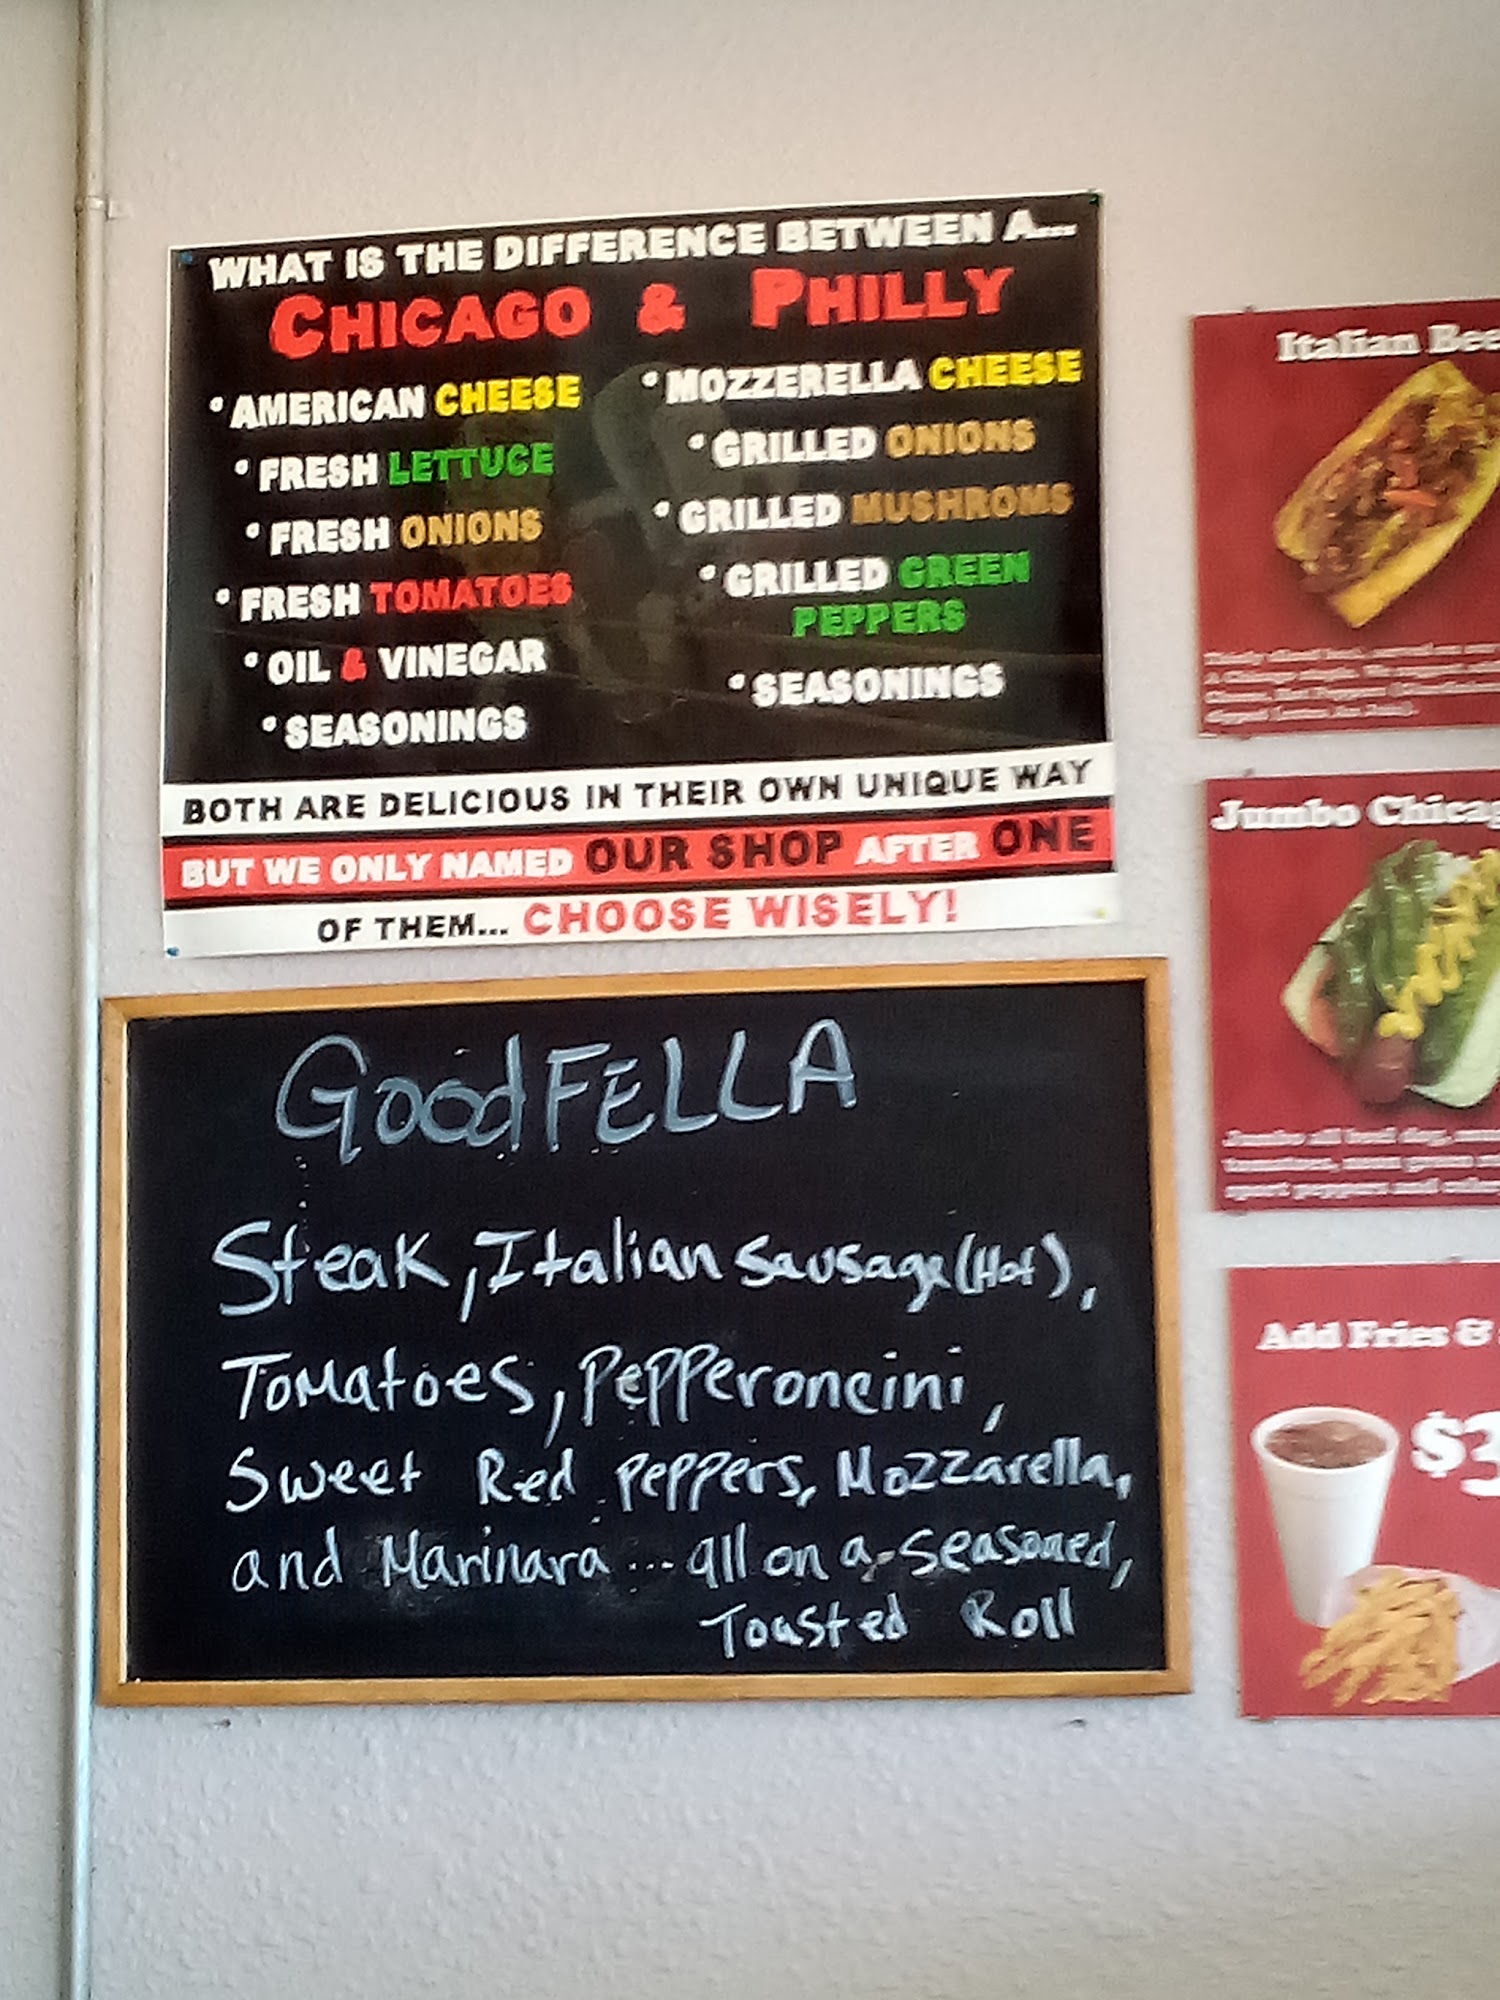 WHAT IS THE DIFFERENCE BETWEEN A...
CHICAGO & PHILLY
• AMERICAN CHEESE
• FRESH LETTUCE
• FRESH ONIONS
• FRESH TOMATOES
• OIL & VINEGAR
• SEASONINGS
• MOZZERELLA CHEESE
• GRILLED ONIONS
• GRILLED MUSHROMS
• GRILLED GREEN
PEPPERS
• SEASONINGS
BOTH ARE DELICIOUS IN THEIR OWN UNIQUE WAY
BUT WE ONLY NAMED OUR SHOP AFTER ONE
OF THEM... CHOOSE WISELY!
GoodFELLA
Steak, Italian Sausage (Hot),
Tomatoes, Pepperoncini,
Sweet Red Peppers, Mozzarella,
and Marinara ... all on a seasoned,
Toasted Roll
Italian Bee
Jumbo Chicag
Jumbo all beef dog,
Add Fries &
$3